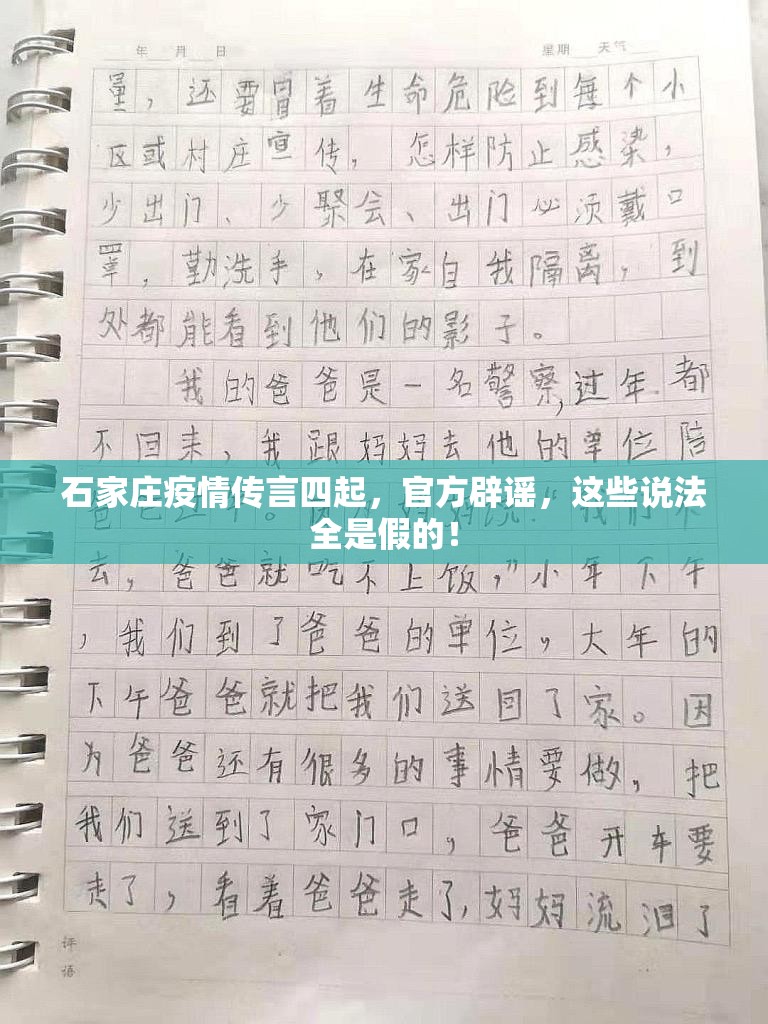 年 月 日 星期 天气
量，还要冒着生命危险到每个小
区或村庄宣传，怎样防止感染，
少出门、少聚会、出门必须戴口
罩，勤洗手，在家自我隔离，到
处都能看到他们的影子。
我的爸爸是一名警察，过年都
不回来，我跟妈妈去他的单位陪
石家庄疫情传言四起，官方辟谣，这些说法
全是假的！
去，爸爸就吃不上饭，”小年下午
，我们到了爸爸的单位，大年的
下午爸爸就把我们送回了家。因
为爸爸还有很多的事情要做，把
我们送到了家门口，爸爸开车要
走了，看着爸爸走了，妈妈流泪了
评
语